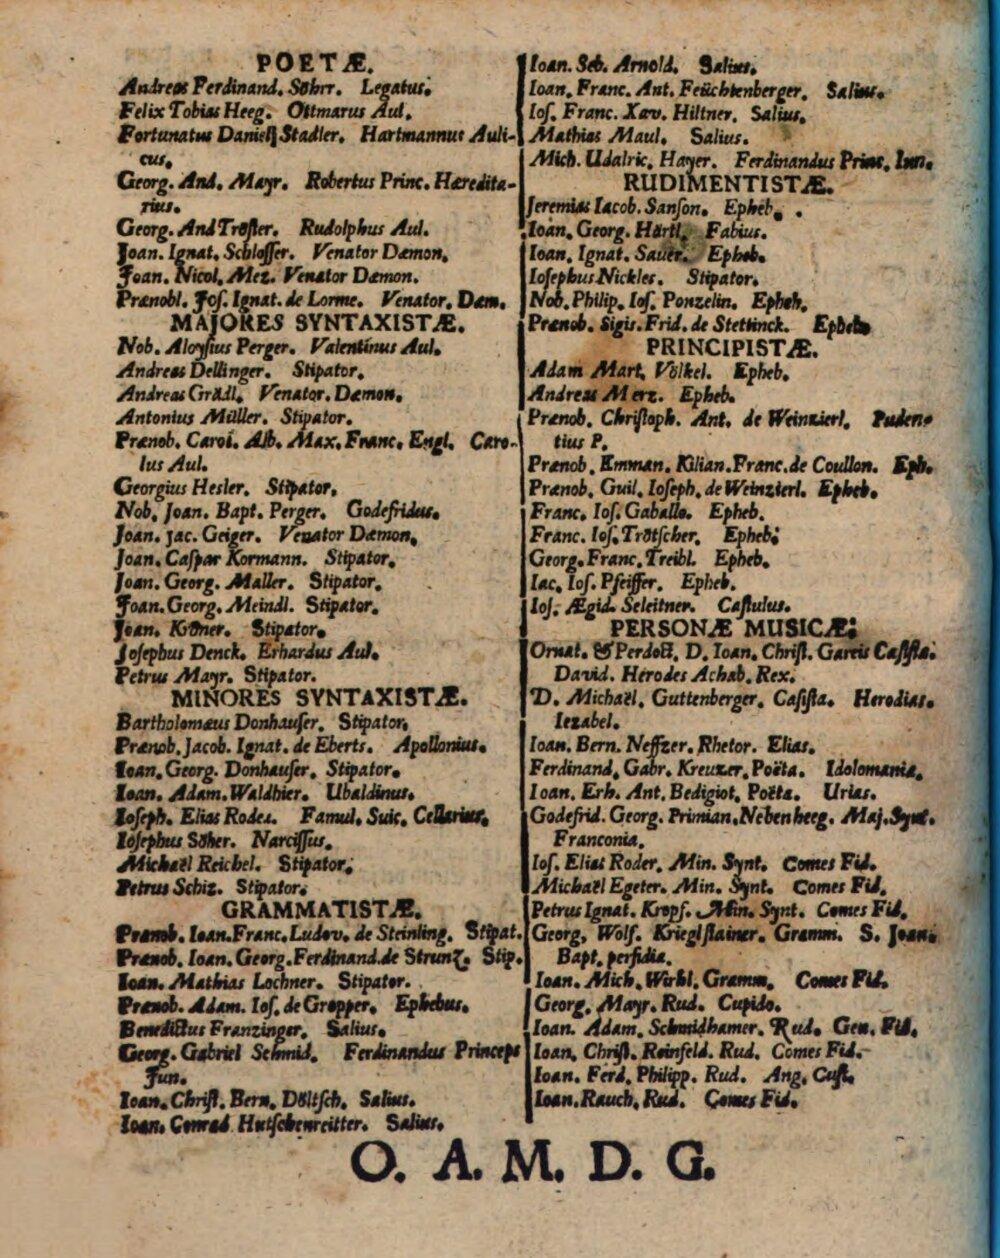 POETÆ.
Andreas Ferdinand. Söhrr. Legatus.
Felix Tobias Heeg. Ottmarus Aul.
Fortunatus Daniel Stadler. Hartmannus Auli-
cus.
Georg. And. Mayr. Robertus Princ. Hæredita-
rius.
Georg. And Tröster. Rudolphus Aul.
Joan. Ignat. Schlosser. Venator Dæmon.
Joan. Nicol. Mez. Venator Dæmon.
Prænobl. Jos. Ignat. de Lorme. Venator. Dæm.
MAJORES SYNTAXISTÆ.
Nob. Aloysius Perger. Valentinus Aul.
Andreas Dellinger. Stipator.
Andreas Grädl. Venator. Dæmon.
Antonius Müller. Stipator.
Prænob. Carol. Alb. Max. Franc. Engl. Caro-
lus Aul.
Georgius Hesler. Stipator.
Nob. Joan. Bapt. Perger. Godefridus.
Joan. Jac. Geiger. Venator Dæmon.
Joan. Caspar Kormann. Stipator.
Joan. Georg. Maller. Stipator.
Joan. Georg. Meindl. Stipator.
Joan. Kröner. Stipator.
Josephus Denck. Erhardus Aul.
Petrus Mayr. Stipator.
MINORES SYNTAXISTÆ.
Bartholomæus Donhauser. Stipator.
Prænob. Jacob. Ignat. de Eberts. Apollonius.
Ioan. Georg. Donhauser. Stipator.
Ioan. Adam. Waldhier. Ubaldinus.
Ioseph. Elias Roder. Famul. Suic. Cellarius.
Iosephus Söher. Narcissus.
Michaël Reichel. Stipator.
Petrus Schiz. Stipator.
GRAMMATISTÆ.
Prænob. Ioan. Franc. Ludov. de Steinling. Stipat.
Prænob. Ioan. Georg. Ferdinand. de Strunz. Stip.
Ioan. Mathias Lochner. Stipator.
Prænob. Adam. Ios. de Gropper. Ephebus.
Benedictus Franzinger. Salius.
Georg. Gabriel Schmid. Ferdinandus Princeps
Jun.
Ioan. Christ. Bern. Döltsch. Salius.
Ioan. Conrad Hutschenreitter. Salius.
Ioan. Seb. Arnold. Salius.
Ioan. Franc. Ant. Feüchtenberger. Salius.
Ios. Franc. Xav. Hiltner. Salius.
Mathias Maul. Salius.
Mich. Udalric. Hayer. Ferdinandus Princ. Iun.
RUDIMENTISTÆ.
Jeremias Iacob. Sanson. Epheb.
Ioan. Georg. Härtl. Fabius.
Ioan. Ignat. Sauer. Epheb.
Iosephus Nickles. Stipator.
Nob. Philip. Ios. Ponzelin. Epheb.
Prænob. Sigis. Frid. de Stettinck. Epheb.
PRINCIPISTÆ.
Adam Mart. Völkel. Epheb.
Andreas Merz. Epheb.
Prænob. Christoph. Ant. de Weinzierl. Puden-
tius P.
Prænob. Emman. Kilian. Franc. de Coullon. Eph.
Prænob. Guil. Ioseph. de Weinzierl. Epheb.
Franc. Ios. Gaballo. Epheb.
Franc. Ios. Trötscher. Epheb.
Georg. Franc. Treibl. Epheb.
Iac. Ios. Pfeiffer. Epheb.
Ios. Ægid. Seleitner. Castulus.
PERSONÆ MUSICÆ.
Ornat. & Perdoct. D. Ioan. Christ. Gareis Casista.
David. Herodes Achab. Rex.
D. Michaël. Guttenberger. Casista. Herodias.
Iezabel.
Ioan. Bern. Neffzer. Rhetor. Elias.
Ferdinand. Gabr. Kreuzer. Poëta. Idolomania.
Ioan. Erh. Ant. Bedigiot. Poëta. Urias.
Godefrid. Georg. Primian. Nebenheeg. Maj. Synt.
Franconia.
Ios. Elias Roder. Min. Synt. Comes Fid.
Michaël Egeter. Min. Synt. Comes Fid.
Petrus Ignat. Kropf. Min. Synt. Comes Fid.
Georg. Wolf. Krieglstainer. Gramm. S. Joan.
Bapt. perfidia.
Ioan. Mich. Wirhl. Gramm. Comes Fid.
Georg. Mayr. Rud. Cupido.
Ioan. Adam. Schmidhamer. Rud. Gen. Fid.
Ioan. Christ. Reinfeld. Rud. Comes Fid.
Ioan. Ferd. Philipp. Rud. Ang. Cust.
Ioan. Rauch. Rud. Comes Fid.
O. A. M. D. G.